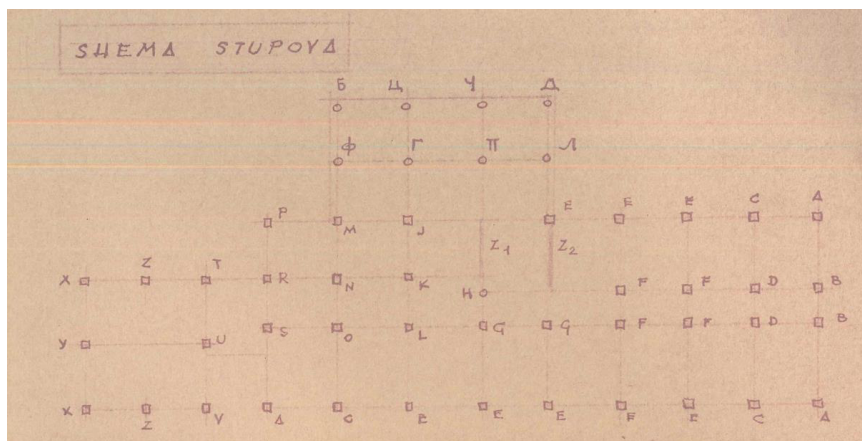 SHEMA STUPOVA
Б Ц Ч Д
Ф Г П Л
P M J E E E C A
Z1 Z2
X Z T R N K H F F D B
Y U S O L G G F F D B
X Z V A C E E E F E C A